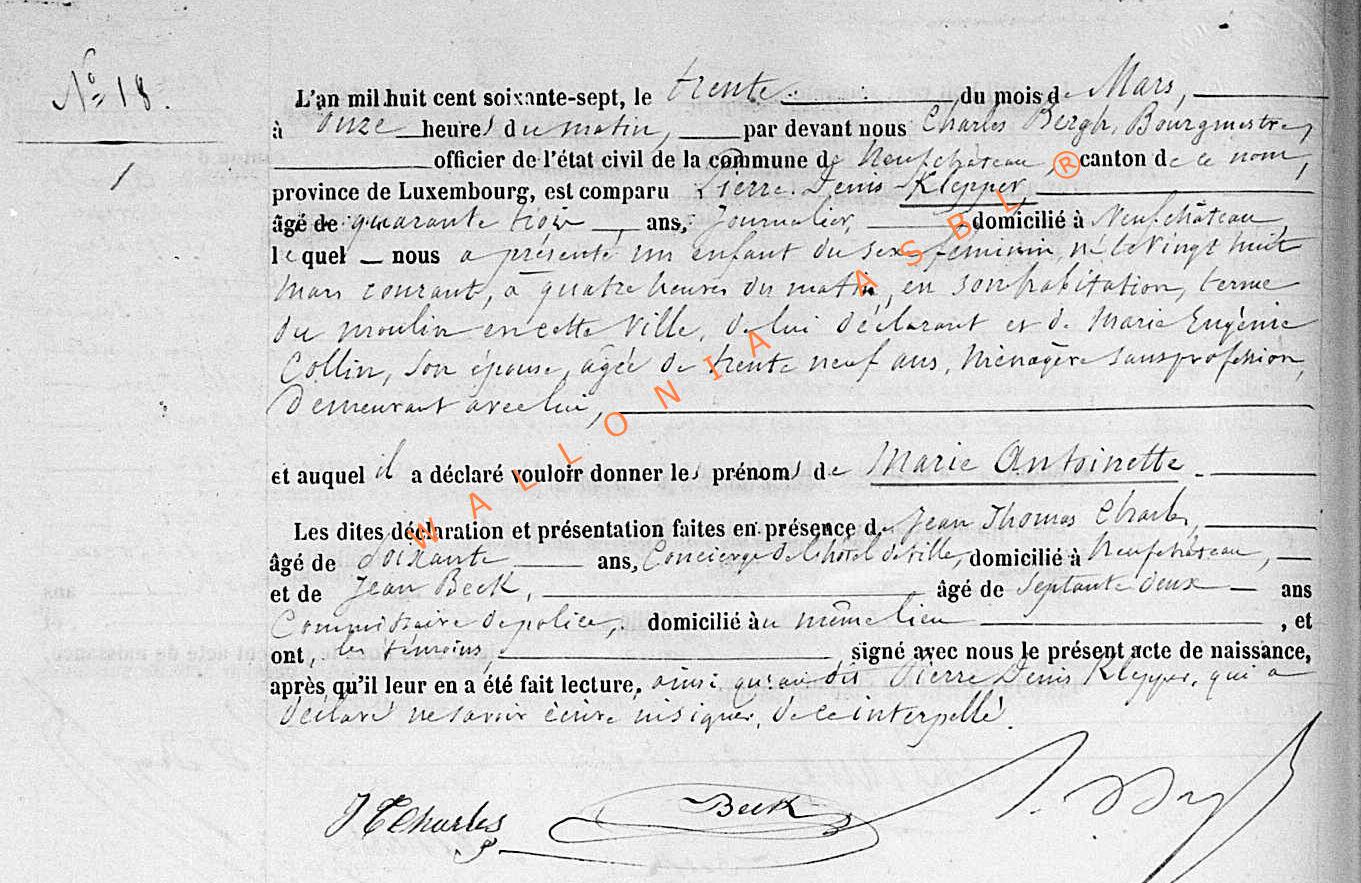 N° 18.
1
L'an mil huit cent soixante-sept, le trente du mois de Mars,
à onze heures du matin, par devant nous Charles Bergh, Bourgmestre,
officier de l'état civil de la commune de Neufchâteau, canton de ce nom,
province de Luxembourg, est comparu Pierre Denis Klepper,
âgé de quarante trois ans, Journalier, domicilié à Neufchâteau
lequel nous a présenté un enfant du sexe féminin, né le vingt huit
Mars courant, à quatre heures du matin, en son habitation, terme
du moulin en cette Ville, de lui déclarant et de Marie Eugénie
Collin, son épouse, agée de trente neuf ans, Ménagère sans profession,
Demeurant avec lui,
et auquel il a déclaré vouloir donner les prénoms de Marie Antoinette
Les dites déclaration et présentation faites en présence de Jean Thomas Charles,
âgé de soixante ans, Concierge de l'hôtel de ville, domicilié à Neufchâteau,
et de Jean Beck, âgé de septante deux ans
Commissaire de police, domicilié au même lieu , et
ont, les témoins, signé avec nous le présent acte de naissance,
après qu'il leur en a été fait lecture, ainsi qu'au dit Pierre Denis Klepper, qui a
déclaré ne savoir écrire ni signer, de ce interpellé.
JT Charles
Beck
WALLONIA ASBL ®